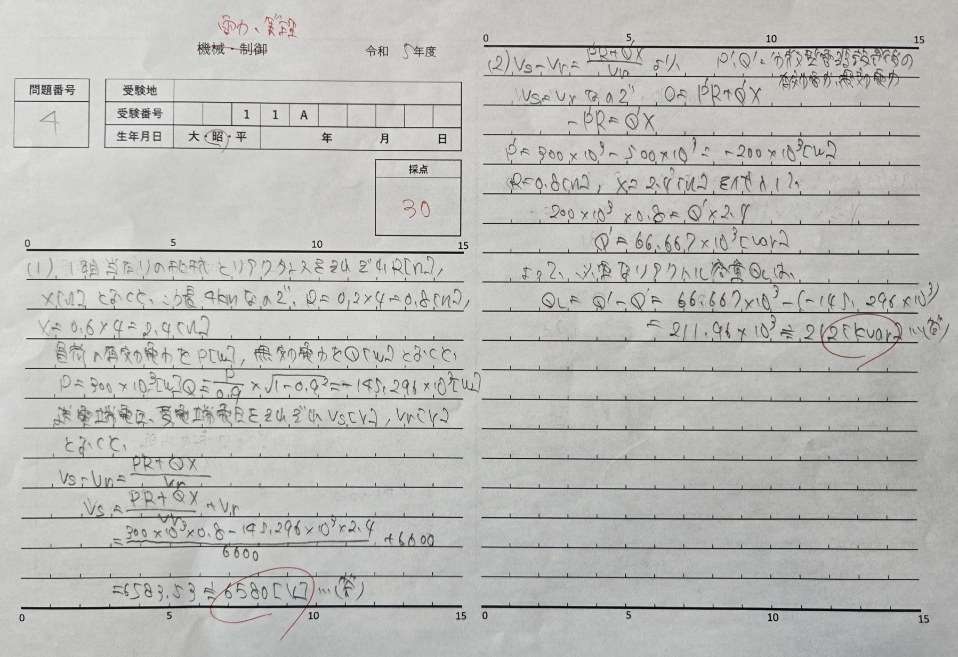 電力・管理
機械・制御
令和 5年度
問題番号
4
受験地
受験番号 1 1 A
生年月日 大・昭・平 年 月 日
採点
30
0 5 10 15
(1) 1相当たりの抵抗とリアクタンスをそれぞれR[Ω],
X[Ω]とおくと、こう長4kmなので、R=0.2×4=0.8[Ω],
X=0.6×4=2.4[Ω]
負荷の有効電力をP[W], 無効電力をQ[W]とおくと、
P=300×10³[W] Q=P/0.9×√1-0.9²=-145.296×10³[W]
送電端電圧、受電端電圧をそれぞれVs[V], Vr[V]
とおくと、
Vs-Vr=PR+QX/Vr
Vs=PR+QX/Vr+Vr
=300×10³×0.8-145.296×10³×2.4/6600+6600
=6583.53≒6580[V]…(答)
0 5 10 15
0 5 10 15
(2) Vs-Vr=P'R+Q'X/Vr より、 P',Q':分散型電源設置時の
有効電力、無効電力
Vs=Vrなので 0=P'R+Q'X
-P'R=Q'X
P'=300×10³-500×10³=-200×10³[W]
R=0.8[Ω], X=2.4[Ω]を代入して、
200×10³×0.8=Q'×2.4
Q'=66.667×10³[var]
よって、必要なリアクトル容量QLは、
QL=Q'-Q=66.667×10³-(-145.296×10³)
=211.96×10³≒212[kvar]…(答)
0 5 10 15